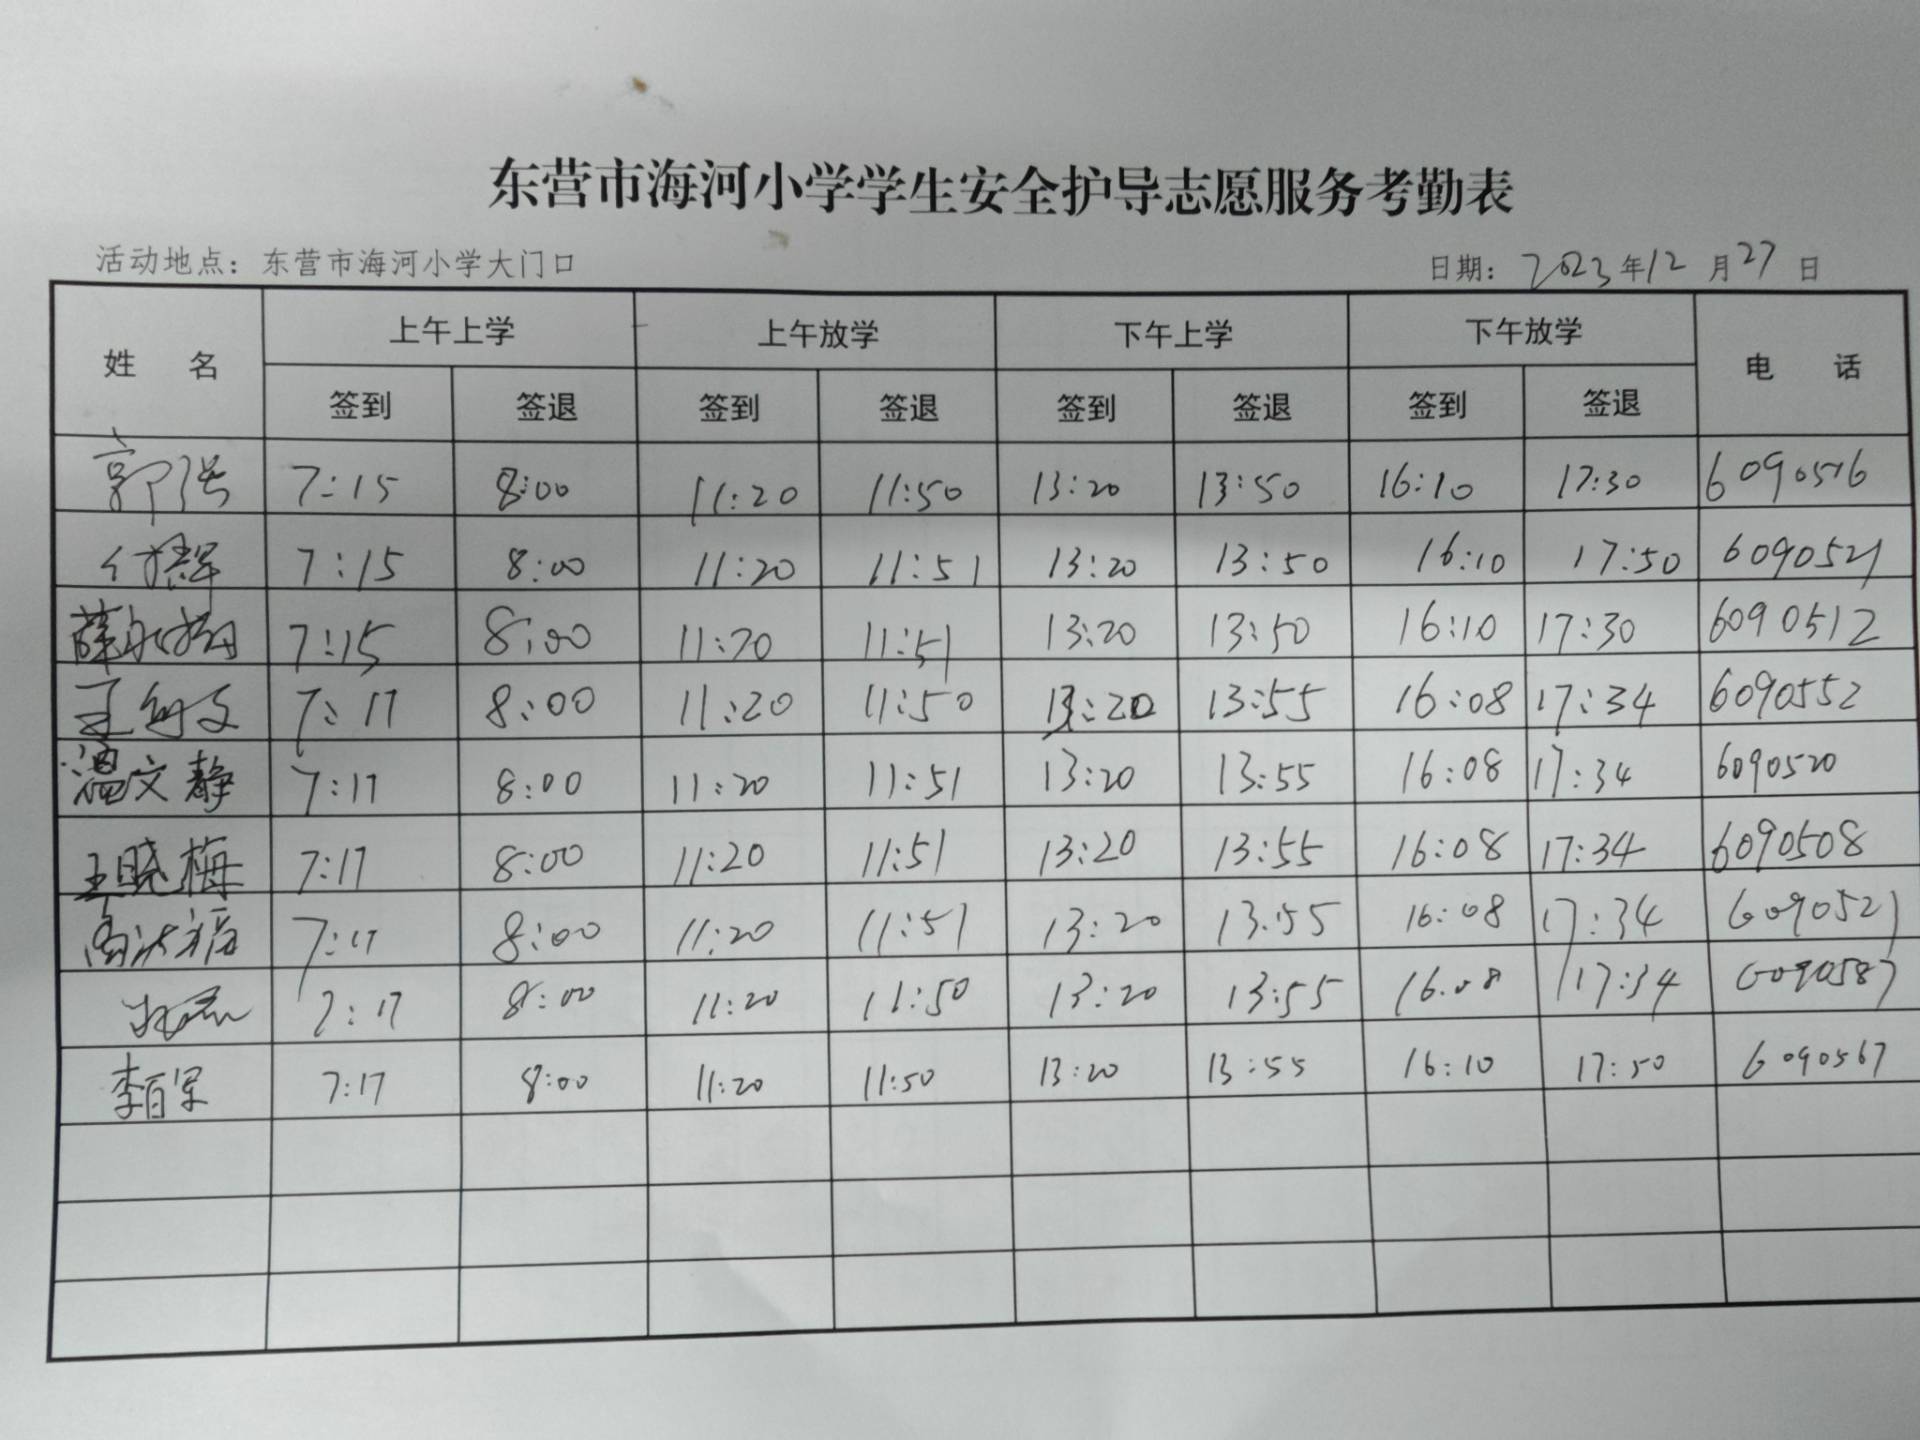 东营市海河小学学生安全护导志愿服务考勤表
活动地点：东营市海河小学大门口 日期：2023年12月27日
姓名 上午上学 上午放学 下午上学 下午放学 电话
签到 签退 签到 签退 签到 签退 签到 签退
郭强 7:15 8:00 11:20 11:50 13:20 13:50 16:10 17:30 6090516
7:15 8:00 11:20 11:51 13:20 13:50 16:10 17:50 6090521
7:15 8:00 11:20 11:51 13:20 13:50 16:10 17:30 6090512
7:17 8:00 11:20 11:50 13:20 13:55 16:08 17:34 6090552
温文静 7:17 8:00 11:20 11:51 13:20 13:55 16:08 17:34 6090520
王晓梅 7:17 8:00 11:20 11:51 13:20 13:55 16:08 17:34 6090508
7:17 8:00 11:20 11:51 13:20 13:55 16:08 17:34 6090521
7:17 8:00 11:20 11:50 13:20 13:55 16:08 17:34 6090587
李百军 7:17 8:00 11:20 11:50 13:20 13:55 16:10 17:50 6090567